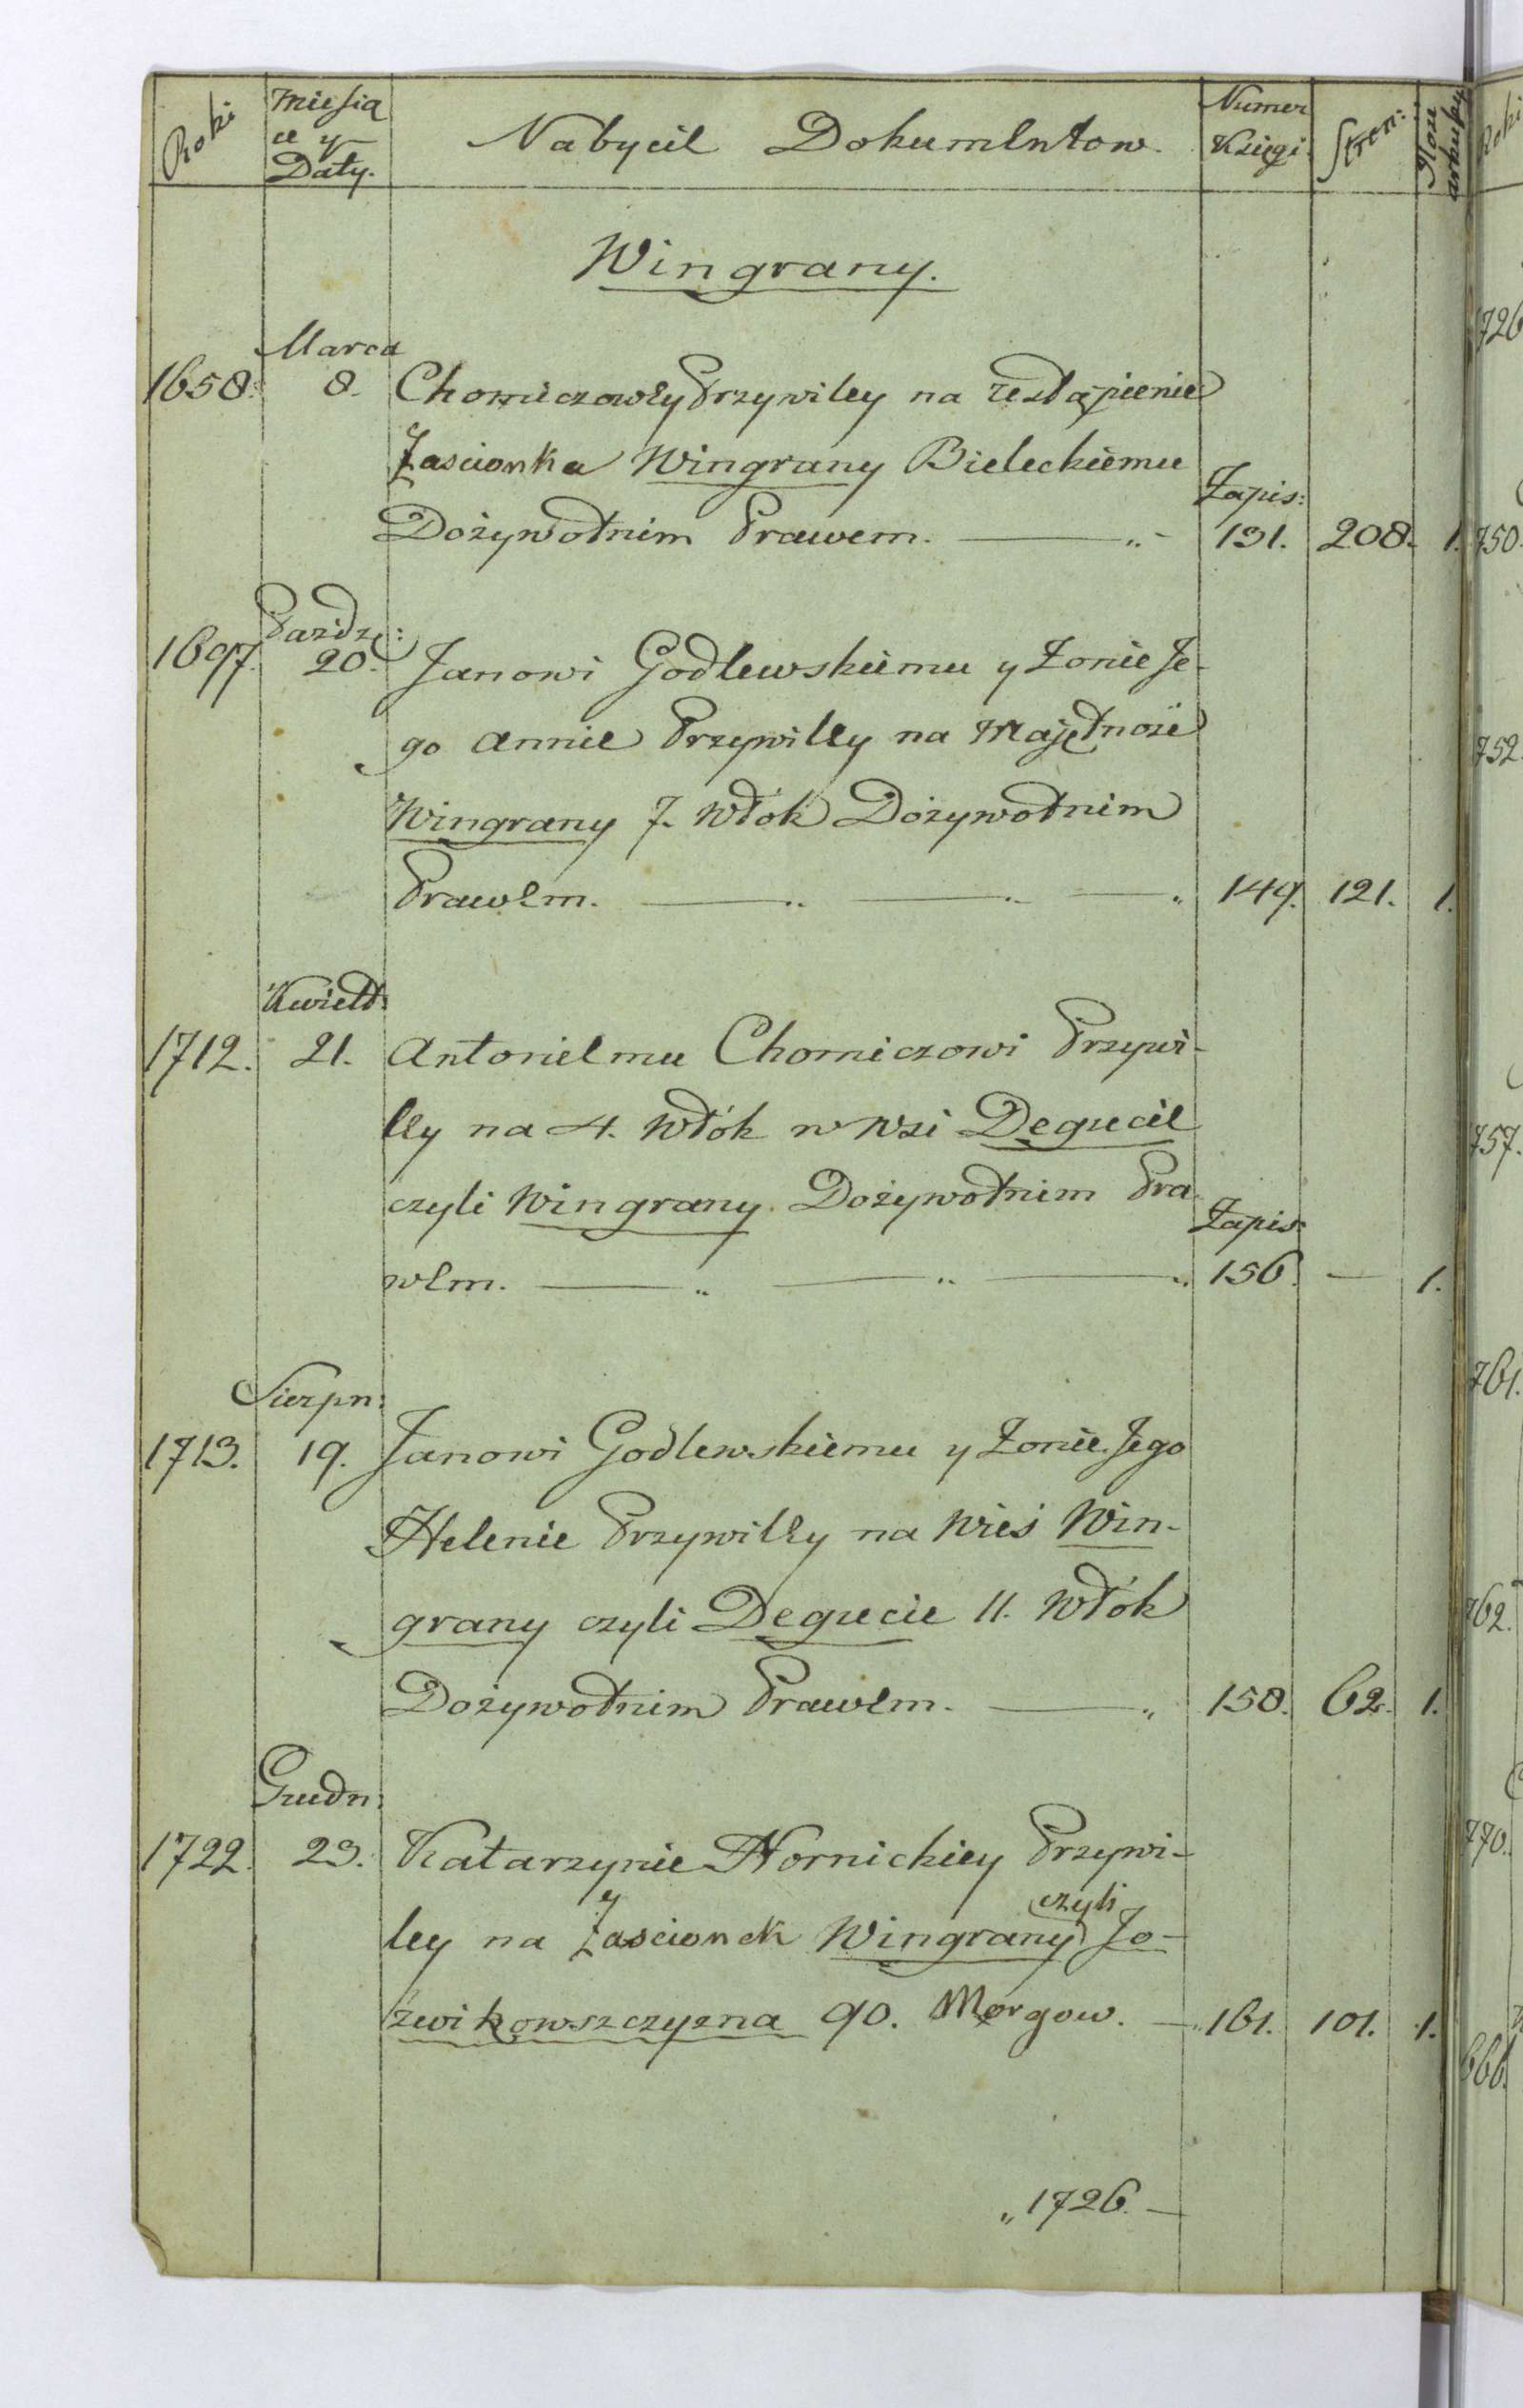 Roki
Miesią
ce y
Daty.
Nabycie Dokumentow.
Numer
Księgi
Stron:
Ilosc
arkuszy
Wingrany.
Marca
1658. 8. Chomiczowey Przywiley na zestąpienie
Zascianka Wingrany Bieleckiemu
Zapis:
Dożywotnim Prawem. 131. 208. 1.
Pazdz:
1697. 20. Janowi Godlewskiemu y Żonie Je-
go Annie Przywiley na Majętność
Wingrany 7. Włók Dożywotnim
Prawem. 149. 121. 1.
Kwiet:
1712. 21. Antoniemu Chomiczowi Przywi-
ley na 4. Włók w Wsi Degucie
czyli Wingrany Dożywotnim Pra
Zapis:
wem. 156. — 1.
Sierpn:
1713. 19. Janowi Godlewskiemu y Żonie Jego
Helenie Przywiley na Wieś Win-
grany czyli Degucie 11. Włók
Dożywotnim Prawem. 158. 62. 1.
Grudn:
1722. 23. Katarzynie Nornickiey Przywi-
czyli
ley na Zascianek Wingrany Jo-
źwikowszczyzna 90. Morgow. 161. 101. 1.
„1726.—